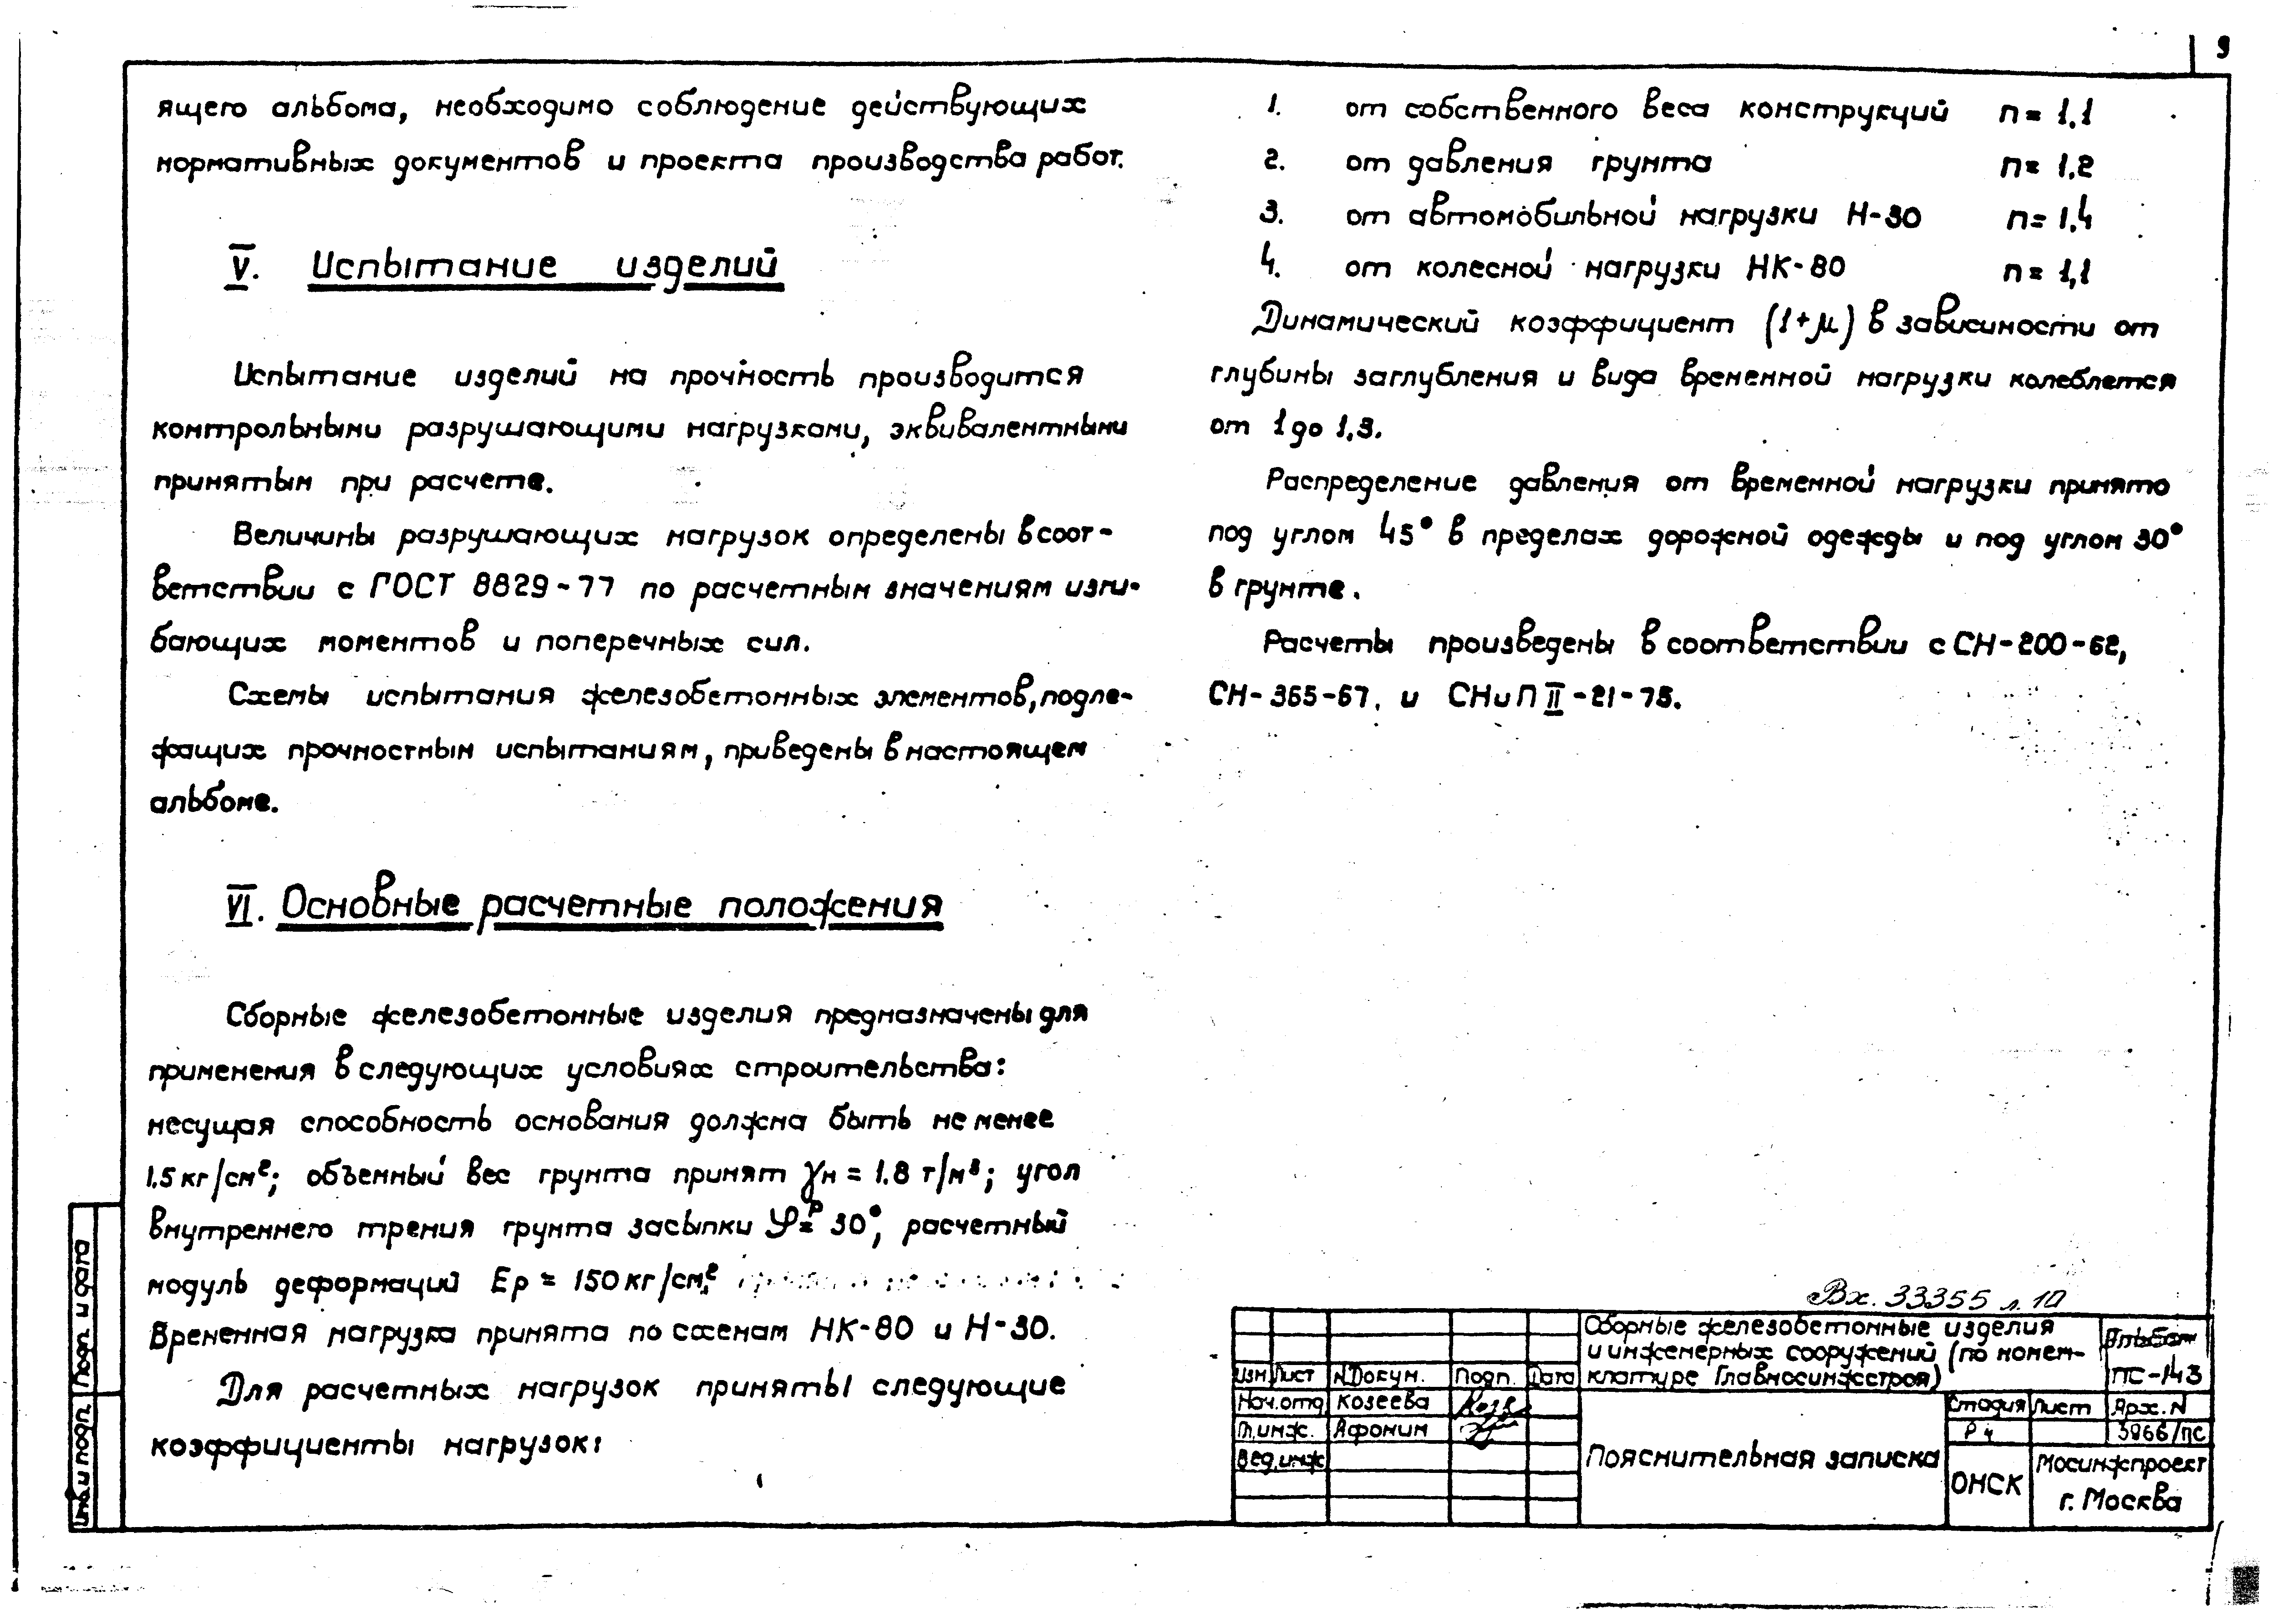 9
ящего альбома, необходимо соблюдение действующих
нормативных документов и проекта производства работ.
V. Испытание изделий
Испытание изделий на прочность производится
контрольными разрушающими нагрузками, эквивалентными
принятым при расчете.
Величины разрушающих нагрузок определены в соот-
ветствии с ГОСТ 8829-77 по расчетным значениям изги-
бающих моментов и поперечных сил.
Схемы испытания железобетонных элементов, подле-
жащих прочностным испытаниям, приведены в настоящем
альбоме.
VI. Основные расчетные положения
Сборные железобетонные изделия предназначены для
применения в следующих условиях строительства:
несущая способность основания должна быть не менее
1.5 кг/см²; объемный вес грунта принят γн = 1.8 т/м³; угол
внутреннего трения грунта засыпки φᵖ= 30°, расчетный
модуль деформаций Ер = 150 кг/см².
Временная нагрузка принята по схемам НК-80 и Н-30.
Для расчетных нагрузок приняты следующие
коэффициенты нагрузок:
1. от собственного веса конструкций n = 1.1
2. от давления грунта n = 1.2
3. от автомобильной нагрузки Н-30 n = 1.4
4. от колесной нагрузки НК-80 n = 1,1
Динамический коэффициент (1+μ) в зависимости от
глубины заглубления и вида временной нагрузки колеблется
от 1 до 1,3.
Распределение давления от временной нагрузки принято
под углом 45° в пределах дорожной одежды и под углом 30°
в грунте.
Расчеты произведены в соответствии с СН-200-62,
СН-365-67. и СНиП II-21-75.
Вх. 33355 л. 10
Сборные железобетонные изделия
и инженерных сооружений (по номен-
клатуре Главмосинжстроя)
Альбом
ПС-143
Изм Лист N Докум. Подп. Дата
Нач.отд Козеева
Гл.инж. Афонин
Вед.инж
Пояснительная записка
Стадия Лист Арх. N
Р 4 3966/ПС
ОНСК
Мосинжпроект
г. Москва
Инв. и подп. Подп. и дата